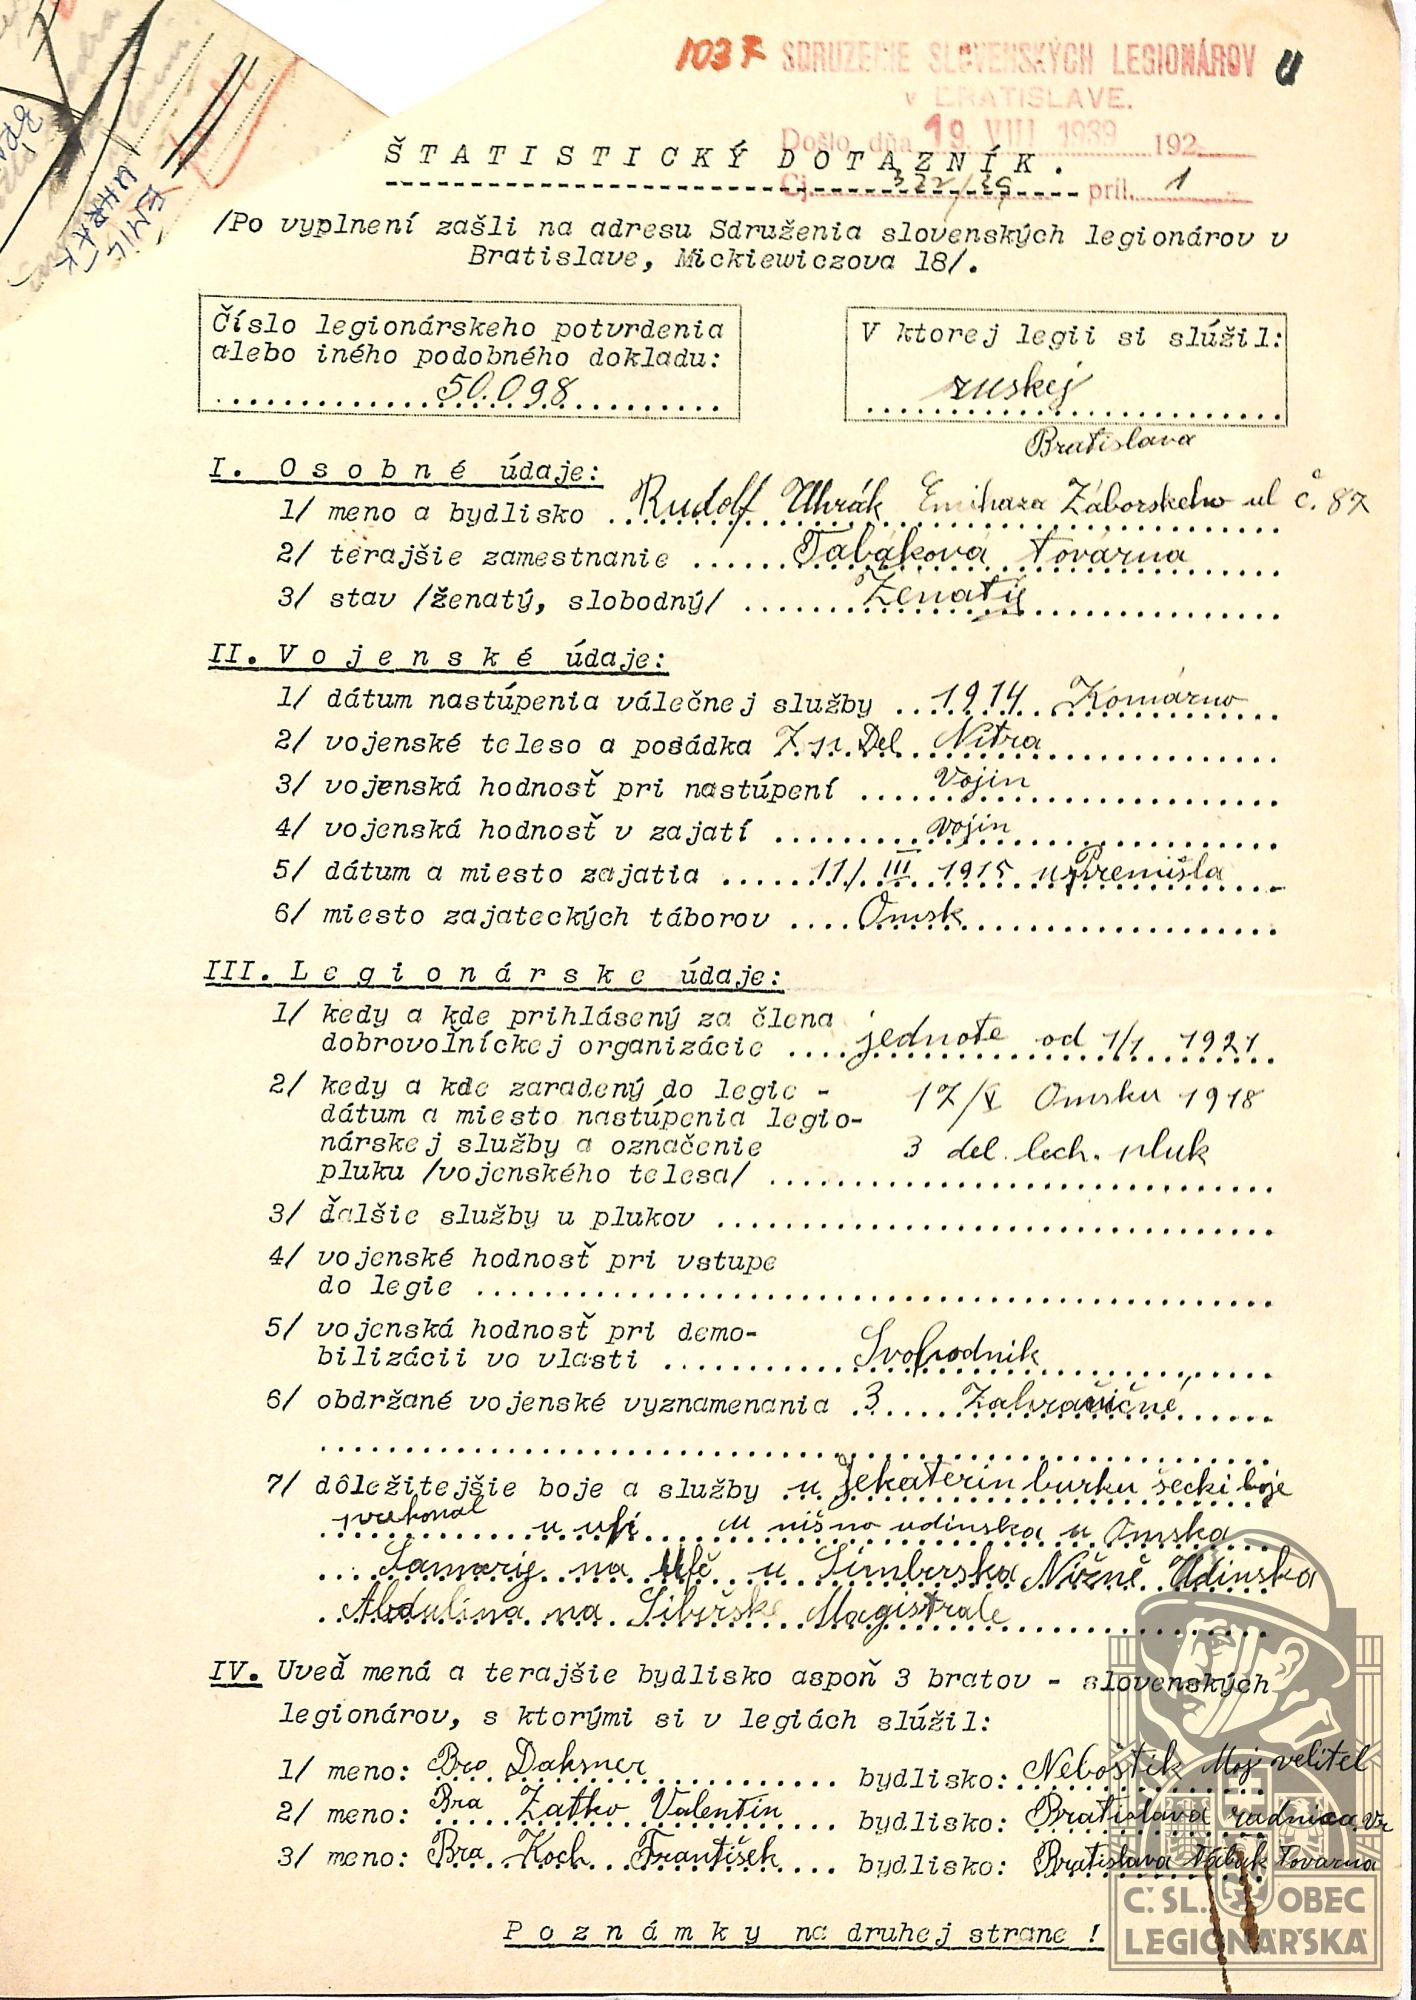 1037 SDRUŽENIE SLOVENSKÝCH LEGIONÁROV U
v BRATISLAVE.
Došlo, dňa 19. VIII 1939 192
ŠTATISTICKÝ DOTAZNÍK.
Čj. 322/39 príl. 1
EMIL
UHRÁK
/Po vyplnení zašli na adresu Sdruženia slovenských legionárov v
Bratislave, Mickiewiczova 18/.
Číslo legionárskeho potvrdenia
alebo iného podobného dokladu:
50.098
V ktorej legii si slúžil:
ruskej
Bratislava
I. Osobné údaje:
1/ meno a bydlisko Rudolf Uhrák Emihaza Záborskeho ul č. 87
2/ terajšie zamestnanie Tabáková továrna
3/ stav /ženatý, slobodný/ Ženatý
II. Vojenské údaje:
1/ dátum nastúpenia válečnej služby 1914 Komárno
2/ vojenské teleso a posádka 7 p. Del Nitra
3/ vojenská hodnosť pri nastúpení Vojin
4/ vojenská hodnosť v zajatí vojin
5/ dátum a miesto zajatia 11/ III 1915 u Premišla
6/ miesto zajateckých táborov Omsk
III. Legionárske údaje:
1/ kedy a kde prihlásený za člena
dobrovoľníckej organizácie jednote od 1/1 1921
2/ kedy a kde zaradený do legie -
dátum a miesto nastúpenia legio-
nárskej služby a označenie
pluku /vojenského telesa/
17/V Omsku 1918
3 del. lech. pluk
3/ ďalšie služby u plukov
4/ vojenské hodnosť pri vstupe
do legie
5/ vojenská hodnosť pri demo-
bilizácii vo vlasti Svobodnik
6/ obdržané vojenské vyznamenania 3 Zahraničné
7/ dôležitejšie boje a služby u Jekaterinburku šecki boje
prekonal u ufi u nišno udinska u Omska
Samarij na Ufě u Simbirska Nižně Udinska
Abdulina na Sibiřske Magistrale
IV. Uveď mená a terajšie bydlisko aspoň 3 bratov - slovenských
legionárov, s ktorými si v legiách slúžil:
1/ meno: Bra Daksner bydlisko: Neboštik Moj velitel
2/ meno: Bra Zatko Valentin bydlisko: Bratislava radnica Vr
3/ meno: Bra Koch František bydlisko: Bratislava tabak tovarna
Poznámky na druhej strane !
Č.SL. OBEC
LEGIONÁŘSKÁ